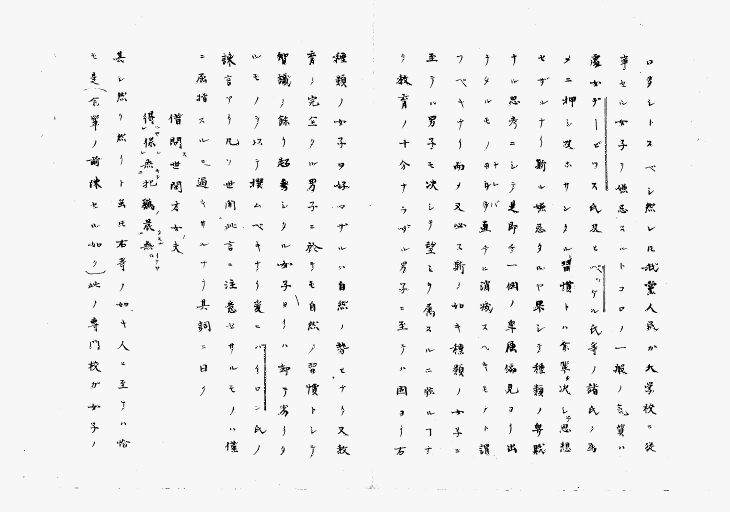 ロタントスベシ然レ𪜈我黨人民ガ大学校ニ從
事セル女子ヲ嫌忌スルトコロノ一般ノ気質ハ
處女デーゼワス氏及ヒベツゲル氏等ノ諸氏ノ為
メニ押シ攻ホサンタル習慣トハ余輩決シテ思想
セザルナリ斯ル嫌忌タルヤ果シテ種類ノ専職
ナル思考ニシテ是即チ一個ノ卑屈偏見ヨリ出
テタルモノナレバ直チニ消滅スヘキモノト謂
フベキナリ而メ又必ス斯ノ如キ種類ノ女子ニ
至テハ男子モ次シテ望ミヲ属スルニ怯ルヿナ
ク教育ノ十分ナラザル男子ニ至テハ固ヨリ右
種類ノ女子ヲ好マザルハ自然ノ勢ヒナリ又教
育ノ完全タル男子ニ於テモ自然ノ習慣トシテ
智識ノ餘リ超専シタル女子ヨリハ却テ劣リタ
ルモノヲ以テ撰ムベキナリ爰ニバイロン氏ノ
諌言アリ凡ソ世間此言ニ注意セサルモノハ僅
ニ屈指スルニ過キサルナリ其詞ニ曰ク
借問世間才女夫
得保無牝鷄晨無
其レ然リ然リト虽𪜈右等ノ如キ人ニ至テハ恰
モ是(余輩ノ前陳セル如ク)此ノ専門校ガ女子ノ